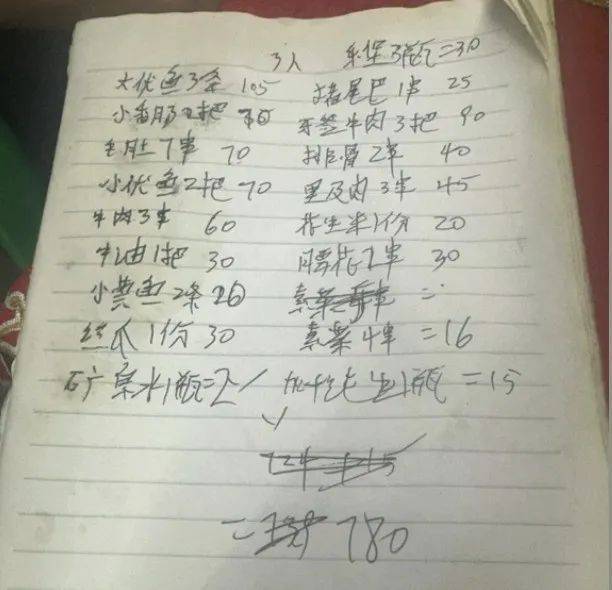 3人 乐堡3瓶=30
大优鱼3条 105 猪尾巴1串 25
小香肠2把 牙签牛肉3把 90
毛肚7串 70 排骨2串 40
小优鱼2把 70 里及肉3串 45
牛肉3串 60 花生米1份 20
牛油1把 30 腰花2串 30
小黄鱼2条 20 =
丝瓜1份 30 素菜4串 =16
矿泉水1瓶=2 1瓶 =15
= 780